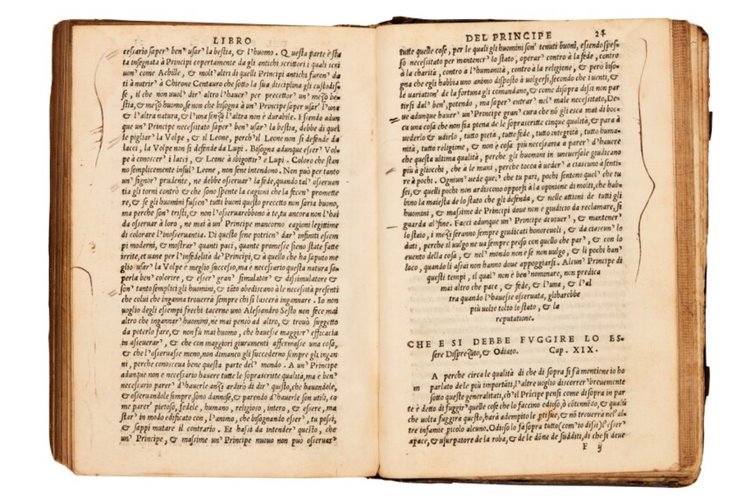 LIBRO
cessario saper' ben' usar la bestia, & l'huomo. Questa parte è sta
ta insegnata à Principi copertamente da gli antichi scrittori i quali scri
uon' come Achille, & molt'altri di quelli Principi antichi furon' da
ti à nutrir' à Chirone Centauro che sotto la sua disciplina gli custodis
se, il che non vuol' dir' altro l'hauer per precettor' un' mezo be
stia, & mezo huomo, se non che bisogna à un' Principe saper usar' l'una
& l'altra natura, & l'una senza l'altra non è durabile. Essendo adun
que un' Principe necessitato saper ben' usar' la bestia, debbe di quel
le pigliar' la Volpe, & il Leone, perche il Leone non si defende da
lacci, la Volpe non si defende da Lupi. Bisogna adunque esser' Vol
pe à conoscer' i lacci, & Leone à sbigottir' e Lupi. Coloro che stan
no semplicemente insu'l Leone, non sene intendono. Non può per tanto
un' signor' prudente, ne debbe osseruar' la fede, quando tal' osseruan
tia gli torni contrò & che sono spente la cagioni che la fecen' promette
re, & se gli huomini fussen' tutti buoni questo precetto non saria buono,
ma perche son' tristi, & non l'osseruarebbono à te, tu ancora non l'hai
da osseruar à loro, ne mai à un' Principe mancorno cagioni legittime
di colorare l'inosseruantia. Di questo sene potrien' dar' infiniti essem
pi moderni, & mostrar' quanti paci, quante promesse sieno state fatte
irrite, et uane per l'infedelità de' Principi, & à quello che ha saputo me
glio usar' la Volpe è meglio successo, ma è necessario questa natura sa
perla ben' colorire, & esser' gran' simulator' & dissimulatore &
son' tanto semplici gli huomini, & tãto obediscono à le necessità presenti
che colui che inganna trouerrà sempre chi si lascerà ingannare. Io non
voglio degli essempi freschi tacerne uno Alessandro Sesto non fece mai
altro che ingannar' huomini, ne mai pensò ad altro, & trouò suggetto
da poterlo fare, & non fù mai huomo, che hauesse maggior' efficacia
in asseuerar', & che con maggiori giuramenti affermasse una cosa,
& che l'osseruasse meno, non dimanco gli succederno sempre gli ingan
ni, perche conosceua bene questa parte del mondo. A un' Principe
adunque non è necessario hauere tutte le soprascritte qualità, ma è ben'
necessario parer' d'hauerle anzi ardirò di dir' questo, che hauendole,
& osseruandole sempre sono dannose, & parendo d'hauerle son' utili, co
me parer' pietoso, fedele, humano, religioso, intero, & essere, ma
star' in modo edificato con l'animo, che bisognando esser', tu possi,
& sappi mutare il contrario. Et hassi da intender' questo, che
un' Principe, & massime un' Principe nuouo non può osseruar'
DEL PRINCIPE 28
tutte quelle cose, per le quali gli huomini son' tenuti buoni, essendo spes
so necessitato per mantener' lo stato, operar' contro à la fede, contro
à la charità, contro à l'humanità, contro à la religione, & però biso
gna che egli habbia uno animo disposto à uolgersi, secondo che i uenti, &
le uariationi de la fortuna gli comandano, & come disopra dissi non par
tirsi dal ben', potendo, ma saper' entrar' nel' male necessitato. De
ue adunque hauer' un' Principe gran' cura che nò gli esca mai di bocca
una cosa che non sia piena de le soprascritte cinque qualità, & paia à
uederlo & udirlo, tutto pietà, tutto fede, tutto integrità, tutto huma
nità, tutto religione, & non è cosa più necessaria à parer' d'hauere
che questa ultima qualità, perche gli huomini in uniuersale giudicano
più à gliocchi, che à le mani, perche tocca à ueder' à ciascuno à senti
re à pochi. Ogniun' uede quel' che tu pari, pochi senton' quel' che tu
sei, & quelli pochi non ardiscono opporsi à la opinione di molti, che hab
bino la maiestà de lo stato che gli defenda, & nelle attioni di tutti gli
huomini, & massime de Principi doue non è giudicio da reclamare, si
guarda al' fine. Facci adunque un' Principe conto di uiuer', & mantener'
lo stato, i mezi seranno sempre giudicati honoreuoli, & da ciascun' lo
dati, perche il uulgo ne ua sempre preso con quello che par', & con lo
euento della cosa, & nel' mondo non è se non uulgo, & li pochi han'
loco, quando li assai non hanno doue appoggiarsi. Alcun' Principe di
questi tempi, il qual' non è ben' nominare, non predica
mai altro che pace, & fede, & l'una, & l'al
tra quando l'hauesse osseruata, gliharebbe
più uolte tolto lo stato, & la
reputatione.
CHE E SI DEBBE FVGGIRE LO ES
sere Disprezato, & Odiato. Cap. XIX.
A perche circa le qualità di che di sopra si fà mentione io ho
m parlato dele più importãti, l'altre uoglio discorrer' breuemente
sotto queste generalità, ch'il Prĩcipe pensi come disopra in par
te è detto di fuggir' quelle cose che lo faccino odioso, ò cõtennẽdo, & qualũ
che uolta fuggirà questo, harà adempito le parti sue, & nò trouerrà nel' al
tre infamie picolo alcuno. Odioso lo fa sopra tutto (com'io dissi) l'esser'
rapace, & usurpatore de la roba, & de le dõne de sudditi, di che si deue
F ij